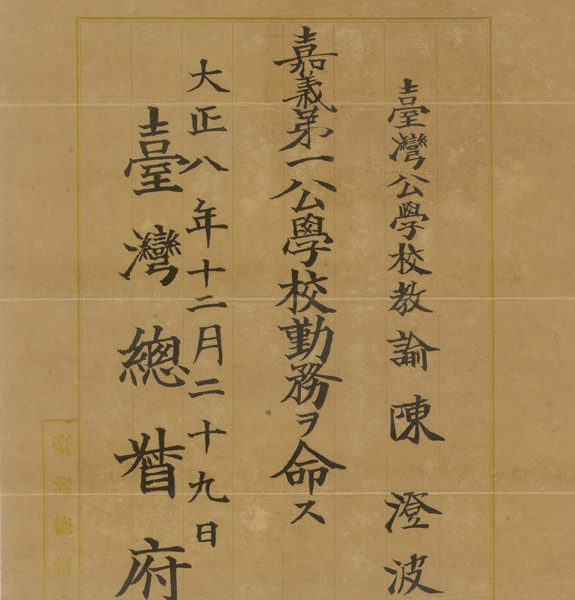 臺灣公學校教諭陳澄波
嘉義第一公學校勤務ヲ命ス
大正八年十二月二十九日
臺灣總督府
臺灣總督